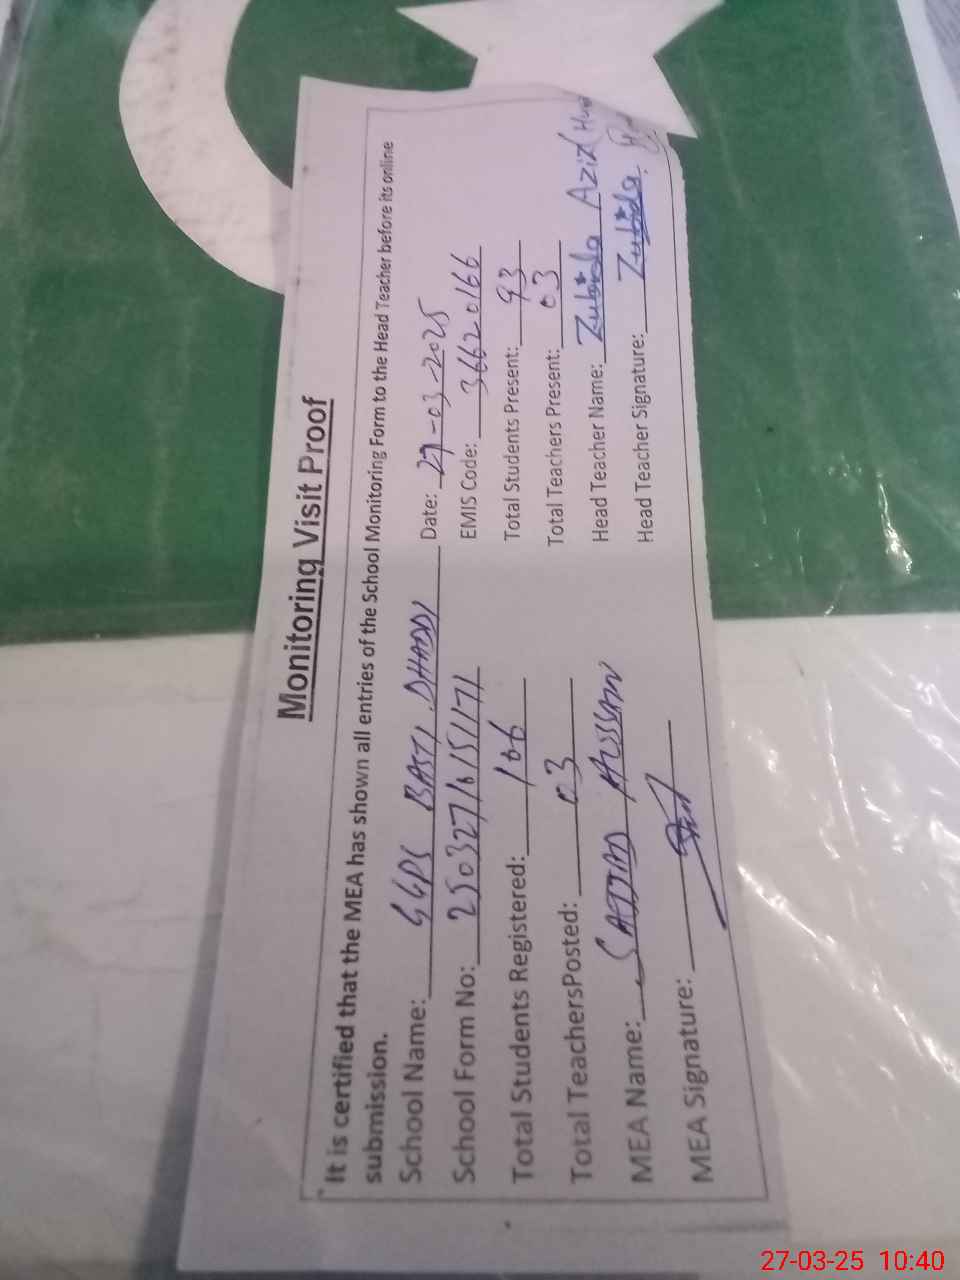 Monitoring Visit Proof
It is certified that the MEA has shown all entries of the School Monitoring Form to the Head Teacher before its online
submission.
School Name: GGPS BASTI DHADDI Date: 27-03-2025
School Form No: 25032716151171 EMIS Code: 36620166
Total Students Registered: 166 Total Students Present: 93
Total TeachersPosted: 03 Total Teachers Present: 03
MEA Name: SAJJAD HUSSAIN Head Teacher Name: Zubida Aziz
MEA Signature: Head Teacher Signature: Zubida.
27-03-25 10:40